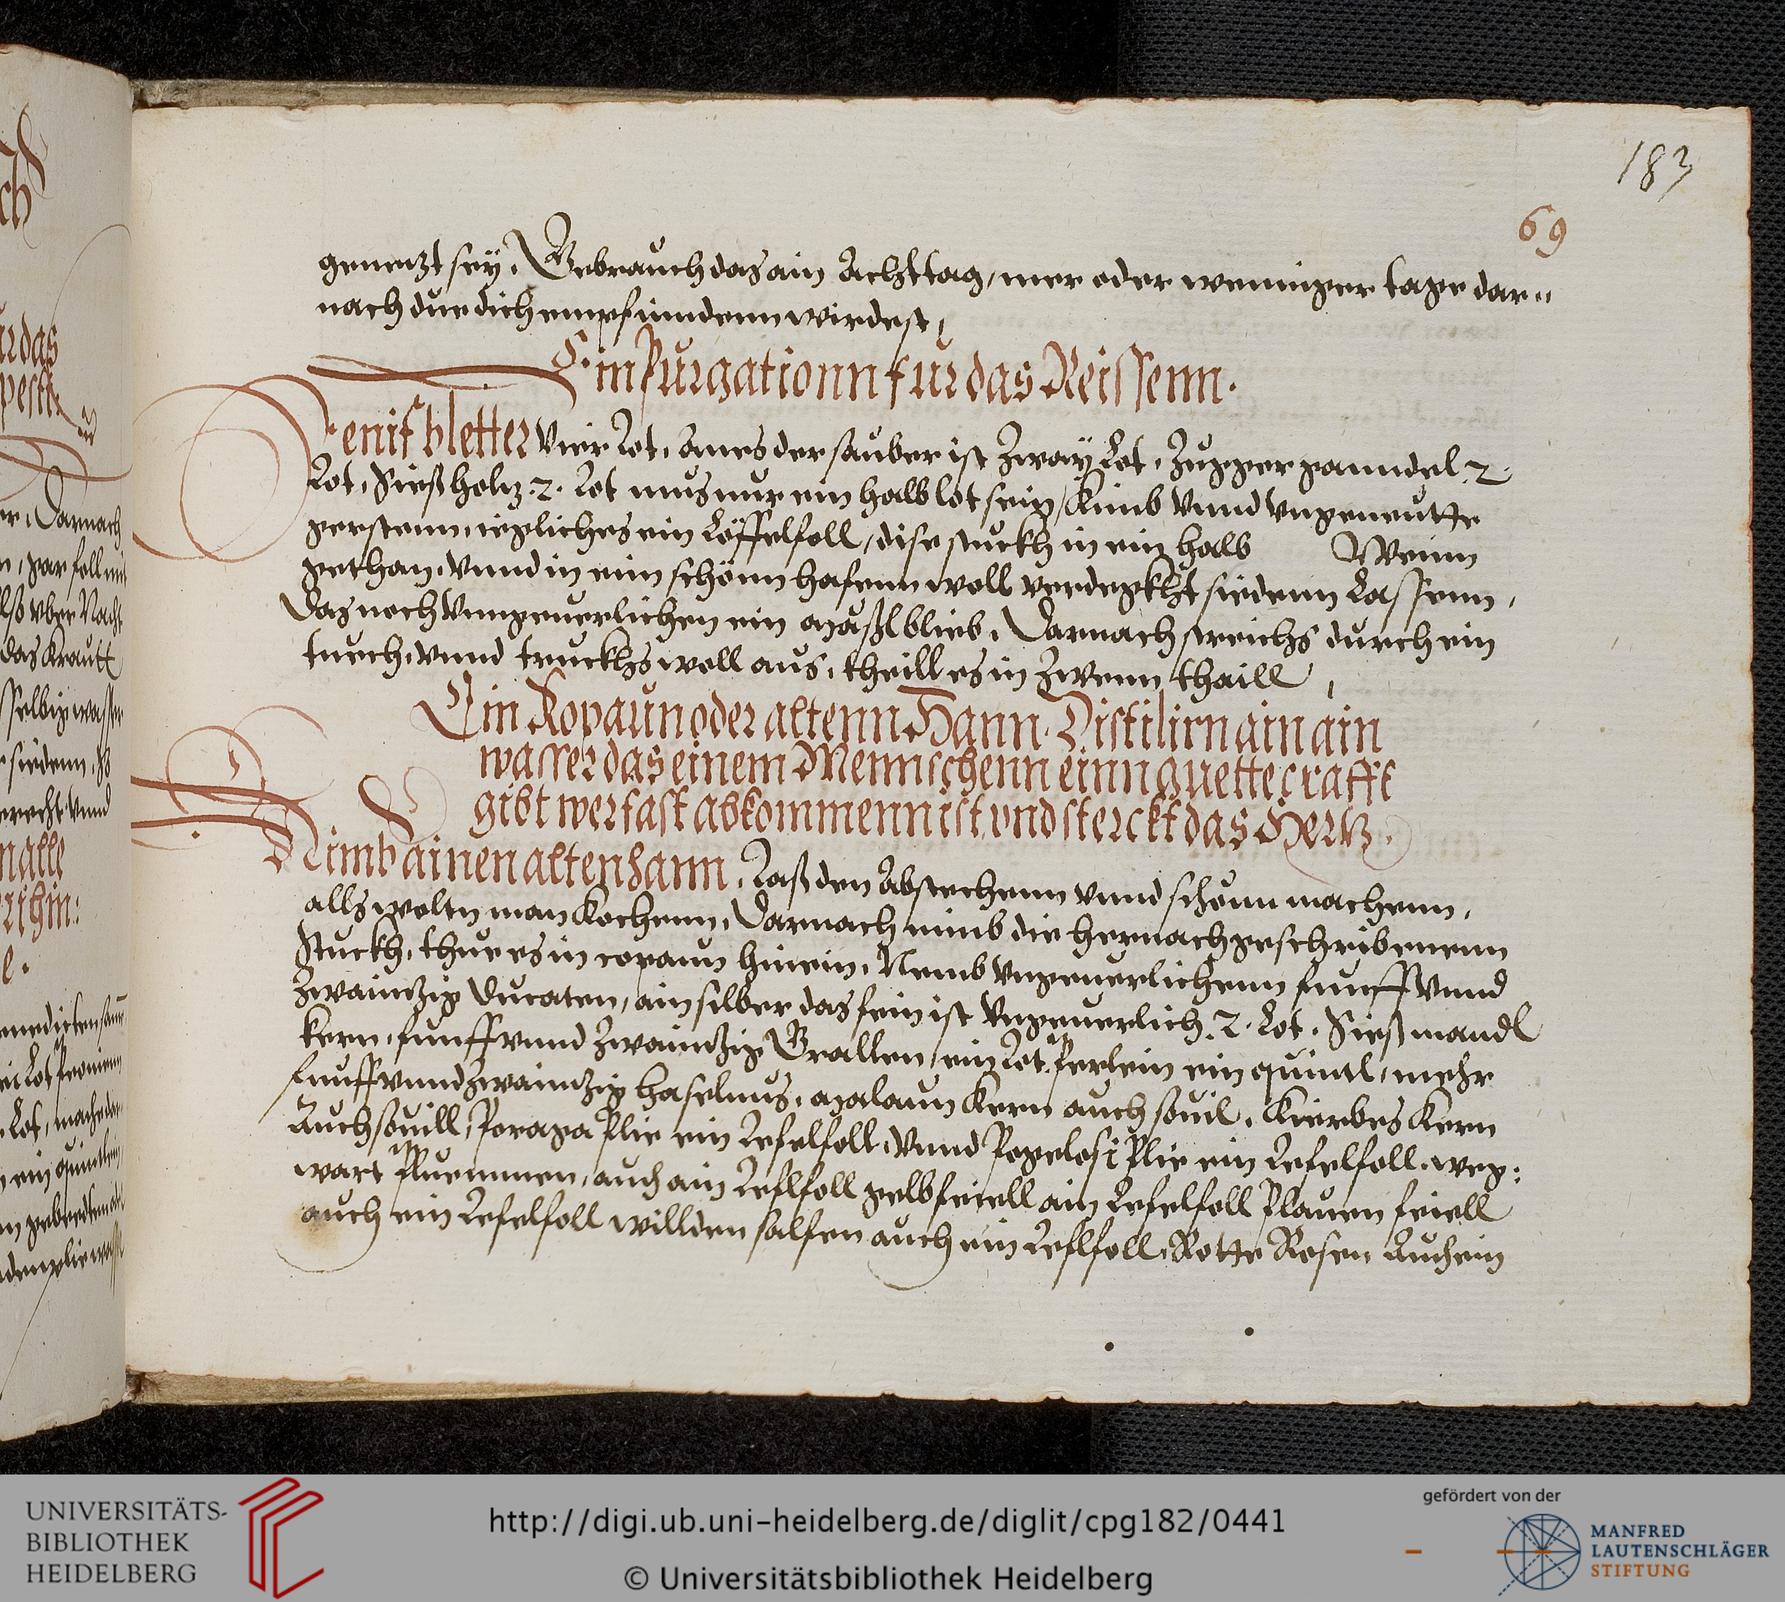 183
69
genenzt sey. Gebrauch das ain Achttag, mer oder weninger tage dar„
nach due dich empfinndenn wirdest,
Ein Purgationn fur das Reissenn.
Senif bletter vier Lot. Anes der sauber ist Zway Lot. Zugger ganndel 2
Lot. Siesholtz 2. Lot mus nur ein halb lot sein, Nimb vnnd vngeneutte
gerstenn iegliches ein Löffelfoll, dise stuckh in ein halb Weinn
gethan. vnnd in ein schönn hafenn woll verdegkht siedenn Lassenn,
Das noch vnngeuerlichen ein Mäßl bleib. Darnach streichs durch ein
tuech. vnnd truckhs woll aus. theill es in Zwenn thaill,
Ein Kopaun oder altenn Hann. Distilirn ain ain
wasser das einem Mennschenn einn guette crafft
gibt wer fast abkommenn ist vnd sterckt das Hertz.
Nimb ainen alten hann. Laß den Abstechenn vnnd schönn machenn,
alls wolty man Kochenn. Darnach nimb die hernach geschribenenn
Stuckh, thue es in copaun hinein. Nemb vngeuerlichenn funff vnnd
Zwaintzig Ducaten, ain silber das fein ist vngeuerlich 2. Lot. Sieß mandl
kern, funff vnnd Zwaintzig Grallen, ein Lot Perlein ein quintl, mehr
funff vnnd Zwaintzig haselnus, Malaun Kern auch souil. Kierbes Kern
Auch souill, Poraga Plie ein Lefelfoll. vnnd Pogelosi Plie ein Lefelfoll. weg:
wart Pluemmen, auch ain Leflfoll gelb feiell ain Lefelfoll Plauen feiell
auch ein Lefelfoll willden salfen auch ein Leflfoll. Rotte Rosen Auch ein
UNIVERSITÄTS-
BIBLIOTHEK
HEIDELBERG
http://digi.ub.uni-heidelberg.de/diglit/cpg182/0441
© Universitätsbibliothek Heidelberg
gefördert von der
MANFRED
LAUTENSCHLÄGER
STIFTUNG